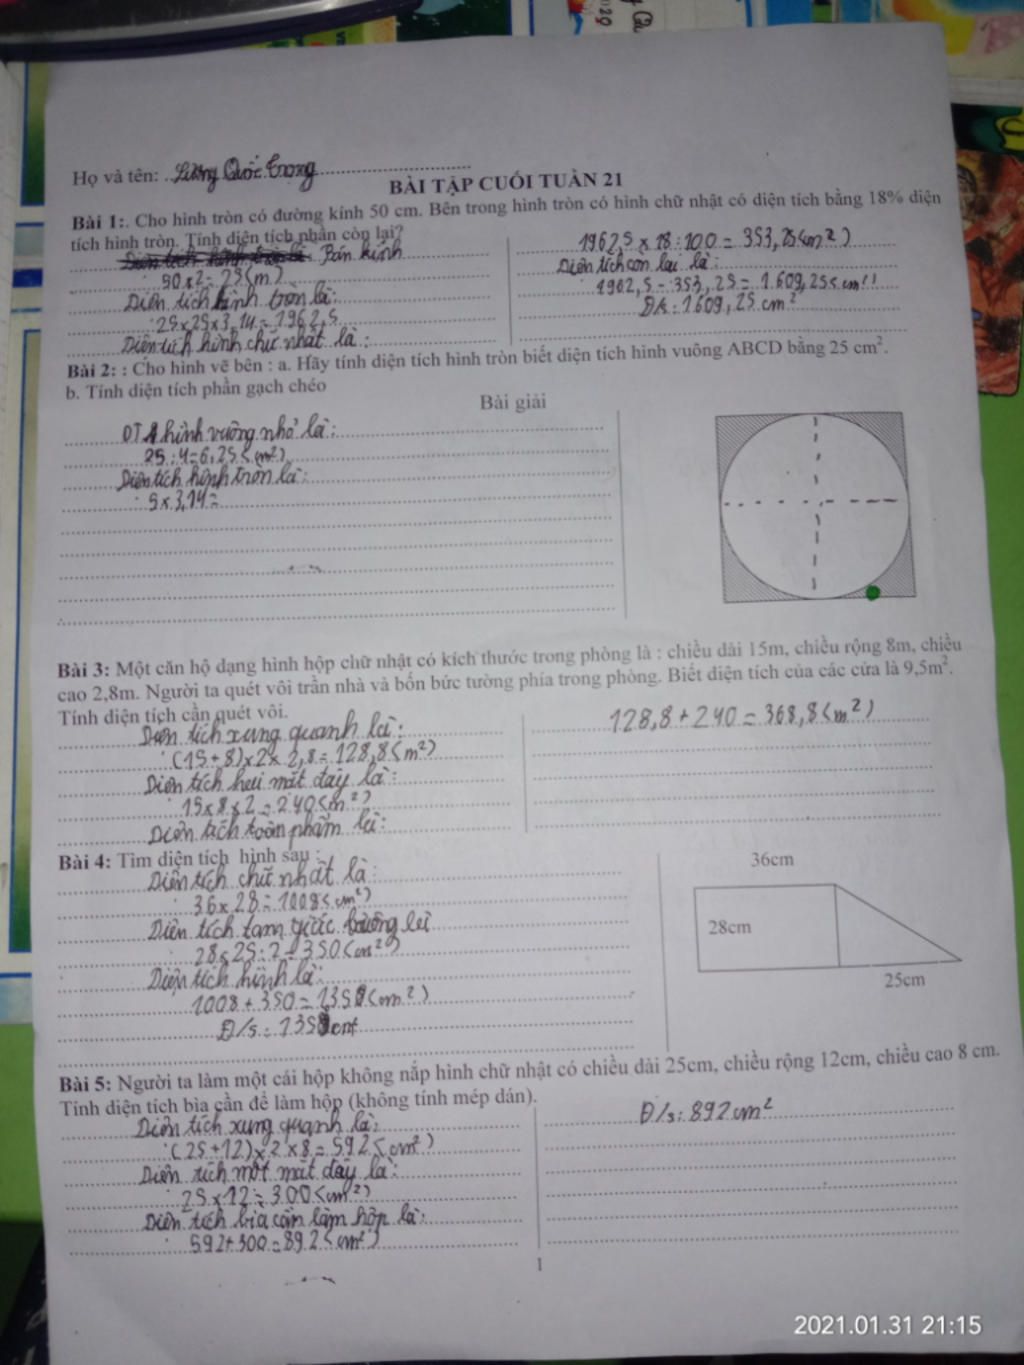 Họ và tên: Lương Quốc Trọng
BÀI TẬP CUỐI TUẦN 21
Bài 1:. Cho hình tròn có đường kính 50 cm. Bên trong hình tròn có hình chữ nhật có diện tích bằng 18% diện
tích hình tròn. Tính diện tích phần còn lại?
Bán kính
50 x 2 = 25 (m)
Diện tích hình tròn là:
25 x 25 x 3,14 = 1962,5
Diện tích hình chữ nhất là :
1962,5 x 18 : 100 = 353,25 (cm2)
Diện tích còn lại là :
1962,5 - 353,25 = 1.609,25 (cm
Đ/s: 1609,25 cm2
Bài 2: : Cho hình vẽ bên : a. Hãy tính diện tích hình tròn biết diện tích hình vuông ABCD bằng 25 cm2.
b. Tính diện tích phần gạch chéo
Bài giải
DT 1 hình vuông nhỏ là :
25 : 4 = 6,25 (m2)
Diện tích hình tròn là :
5 x 3,14 =
Bài 3: Một căn hộ dạng hình hộp chữ nhật có kích thước trong phòng là : chiều dài 15m, chiều rộng 8m, chiều
cao 2,8m. Người ta quét vôi trần nhà và bốn bức tường phía trong phòng. Biết diện tích của các cửa là 9,5m2.
Tính diện tích cần quét vôi.
Diện tích xung quanh là :
(15 + 8) x 2 x 2,8 = 128,8 (m2)
Diện tích hai mặt đáy là :
15 x 8 x 2 = 240 (m2)
Diện tích toàn phầm là :
128,8 + 240 = 368,8 (m2)
Bài 4: Tìm diện tích hình sau :
Diện tích chữ nhất là :
36 x 28 = 1008 (cm2)
Diện tích tam giác vuông là
28 x 25 : 2 = 350 (cm2)
Diện tích hình là :
1008 + 350 = 1358 (cm2)
Đ/s : 1358 cm
36cm
28cm
25cm
Bài 5: Người ta làm một cái hộp không nắp hình chữ nhật có chiều dài 25cm, chiều rộng 12cm, chiều cao 8 cm.
Tính diện tích bìa cần để làm hộp (không tính mép dán).
Diện tích xung quanh là :
(25 + 12) x 2 x 8 = 592 (cm2)
Diện tích một mặt đáy là :
25 x 12 = 300 (cm2)
Diện tích bìa cần làm hộp là :
592 + 300 = 892 (cm2)
Đ/s: 892 cm2
1
2021.01.31 21:15